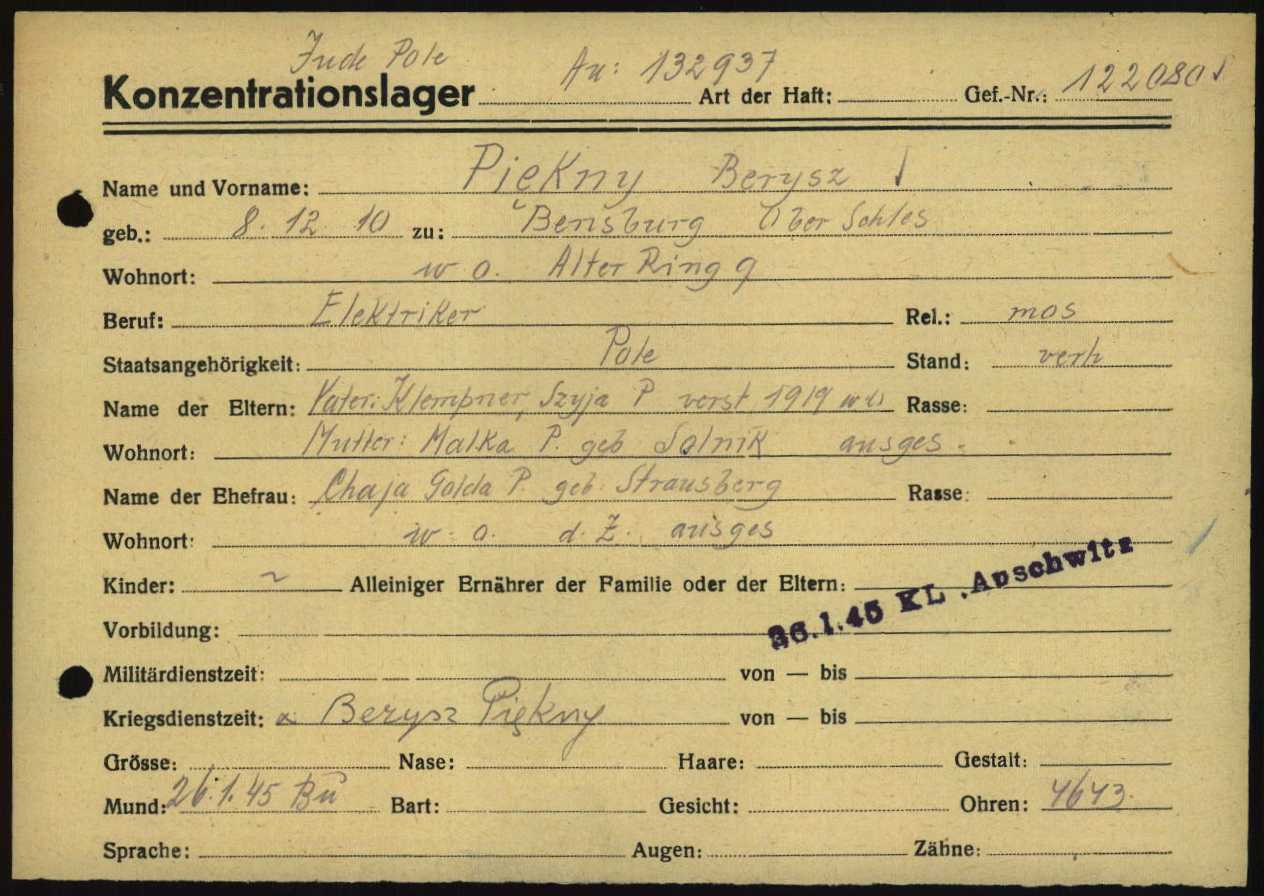 Jude Pole Au: 132937 122080
Konzentrationslager Art der Haft: Gef.-Nr.:
Name und Vorname: Piękny Berysz
geb.: 8. 12. 10 zu: Bensburg Ober Schles
Wohnort: w o. Alter Ring 9
Beruf: Elektriker Rel.: mos
Staatsangehörigkeit: Pole Stand: verh
Name der Eltern: Vater: Klempner, Szyja P verst 1919 Rasse:
Wohnort: Mutter: Malka P. geb Solnik ausges.
Name der Ehefrau: Chaja Golda P. geb. Strausberg Rasse:
Wohnort: w. o. d. Z. ausges
Kinder: Alleiniger Ernährer der Familie oder der Eltern:
26.1.45 KL. Auschwitz
Vorbildung:
Militärdienstzeit: von — bis
Kriegsdienstzeit: x Berysz Piękny von — bis
Grösse: Nase: Haare: Gestalt:
Mund: 26.1.45 Bu Bart: Gesicht: Ohren: 4643
Sprache: Augen: Zähne: